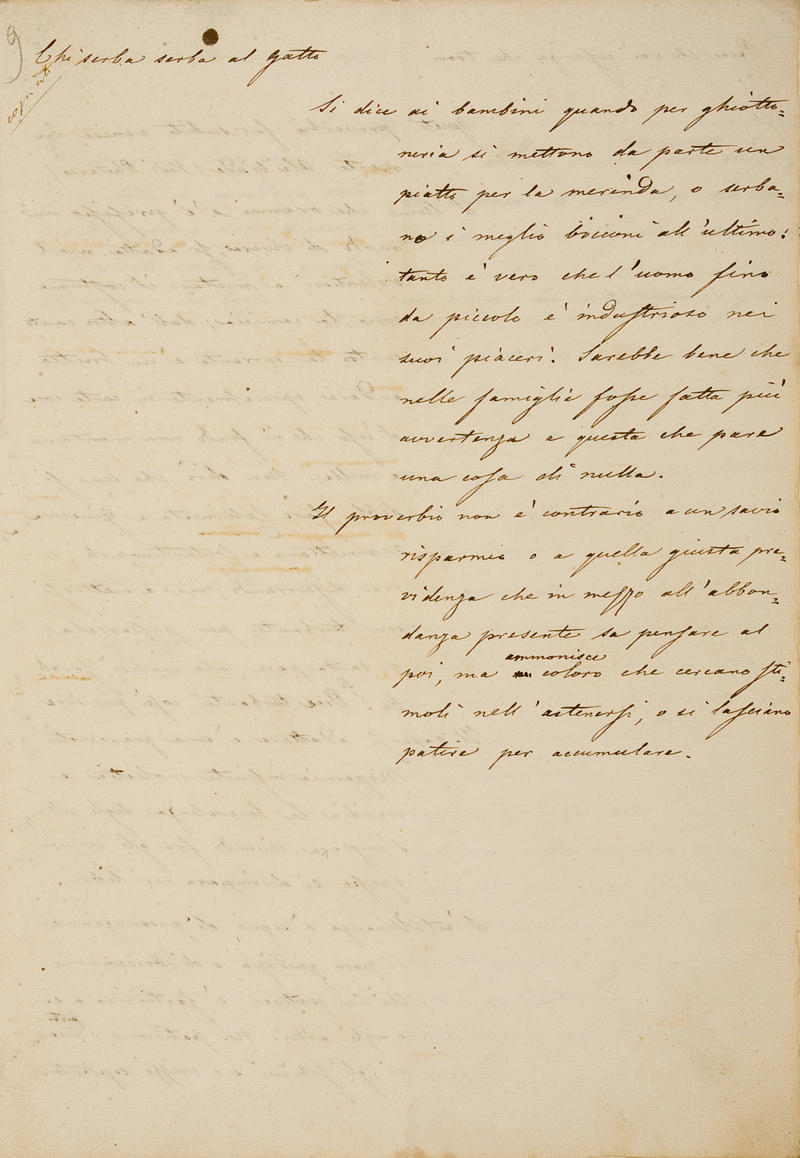 9
Chi serba serba al gatto
copiato
Si dice ai bambini quando per ghiotto=
neria si mettono da parte un
piatto per la merenda, o serba=
no i meglio bocconi all'ultimo:
tanto è vero che l'uomo fino
da piccolo è industrioso nei
suoi piaceri. Sarebbe bene che
nelle famiglie fosse fatta più
avvertenza a questa che pare
una cosa di nulla.
Il proverbio non è contrario a un savio
risparmio o a quella giusta pre=
videnza che in mezzo all'abbon=
danza presente sa pensare al
ammonisce
poi, ma coloro che cercano sti=
moli nell'astenersi, o si lasciano
patire per accumulare.